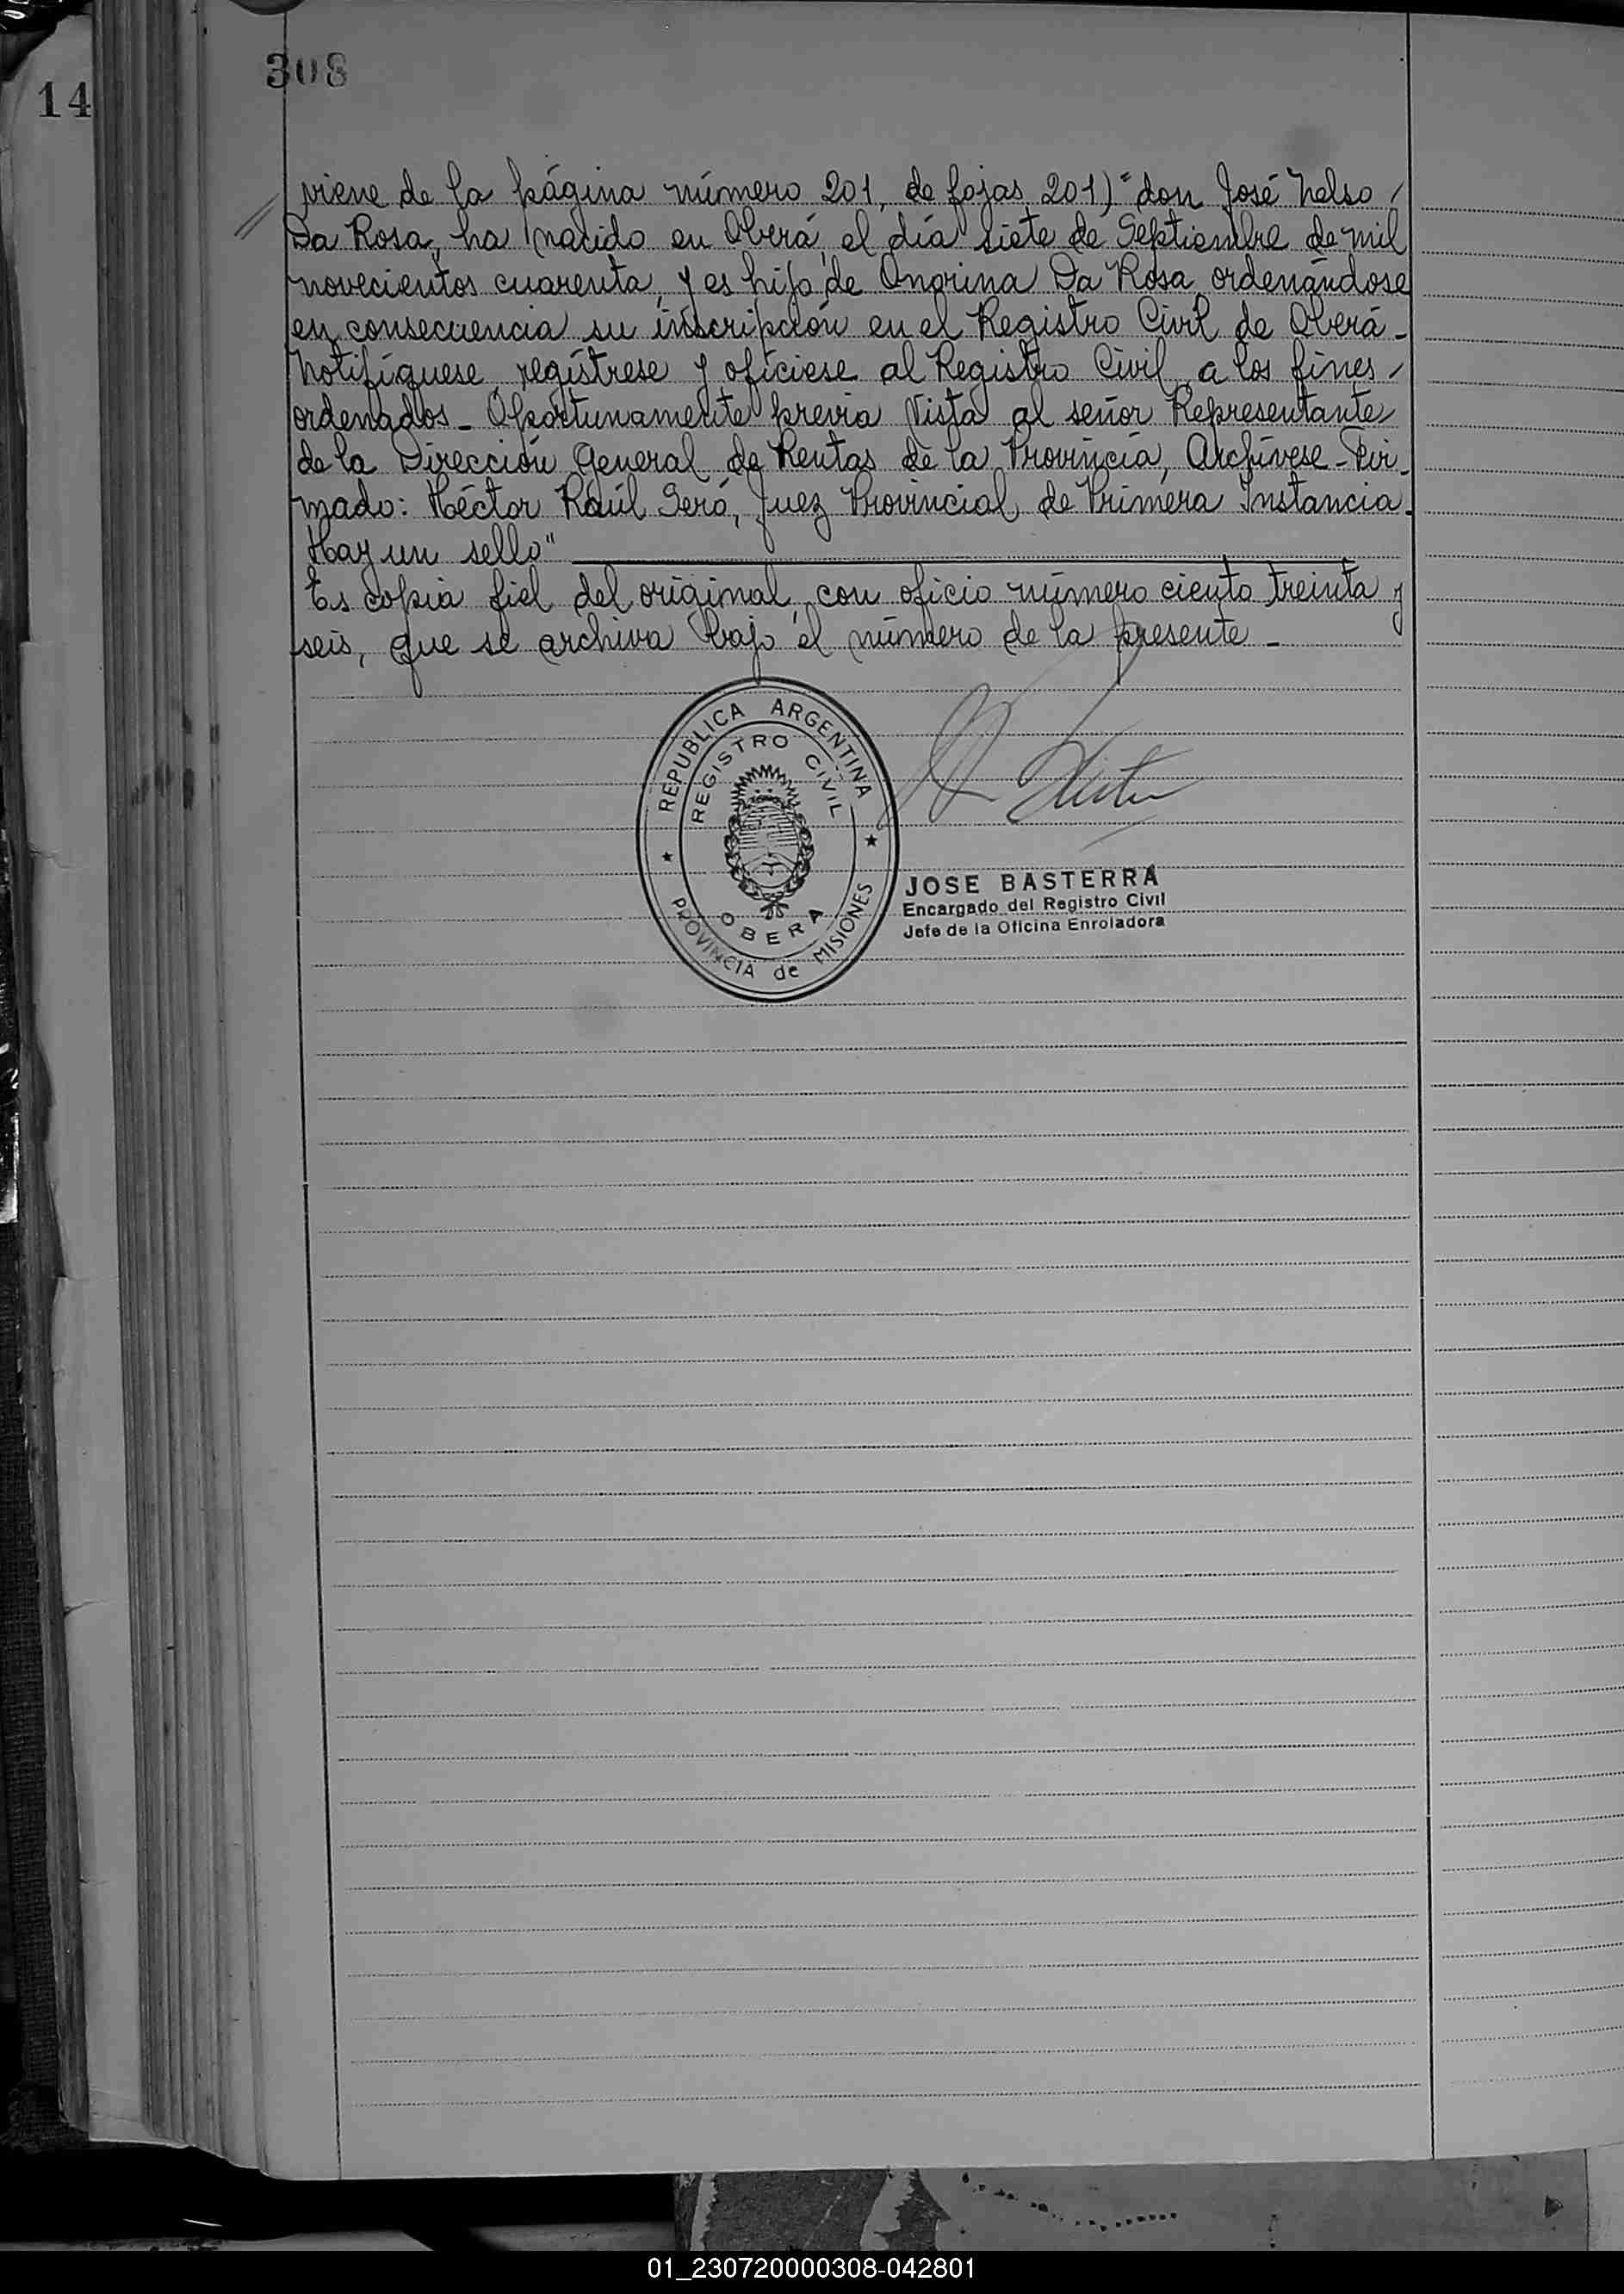 308
14
viene de la página número 201, de fojas 201) "don José Nelso /
Da Rosa, ha nacido en Oberá, el día siete de Septiembre de mil
novecientos cuarenta, y es hijo de Onorina Da Rosa, ordenándose
en consecuencia su inscripción en el Registro Civil de Oberá -
Notifíquese, regístrese y ofíciese al Registro Civil, a los fines /
ordenados - Oportunamente previa Vista al señor Representante
de la Dirección General de Rentas de la Provincia, Archívese - Fir-
mado: Héctor Raúl Seró, Juez Provincial de Primera Instancia.
Hay un sello"
Es copia fiel del original, con oficio número ciento treinta y
seis, que se archiva bajo el número de la presente -
REPUBLICA ARGENTINA
REGISTRO CIVIL
OBERA
PROVINCIA de MISIONES
JOSE BASTERRA
Encargado del Registro Civil
Jefe de la Oficina Enroladora
01_230720000308-042801